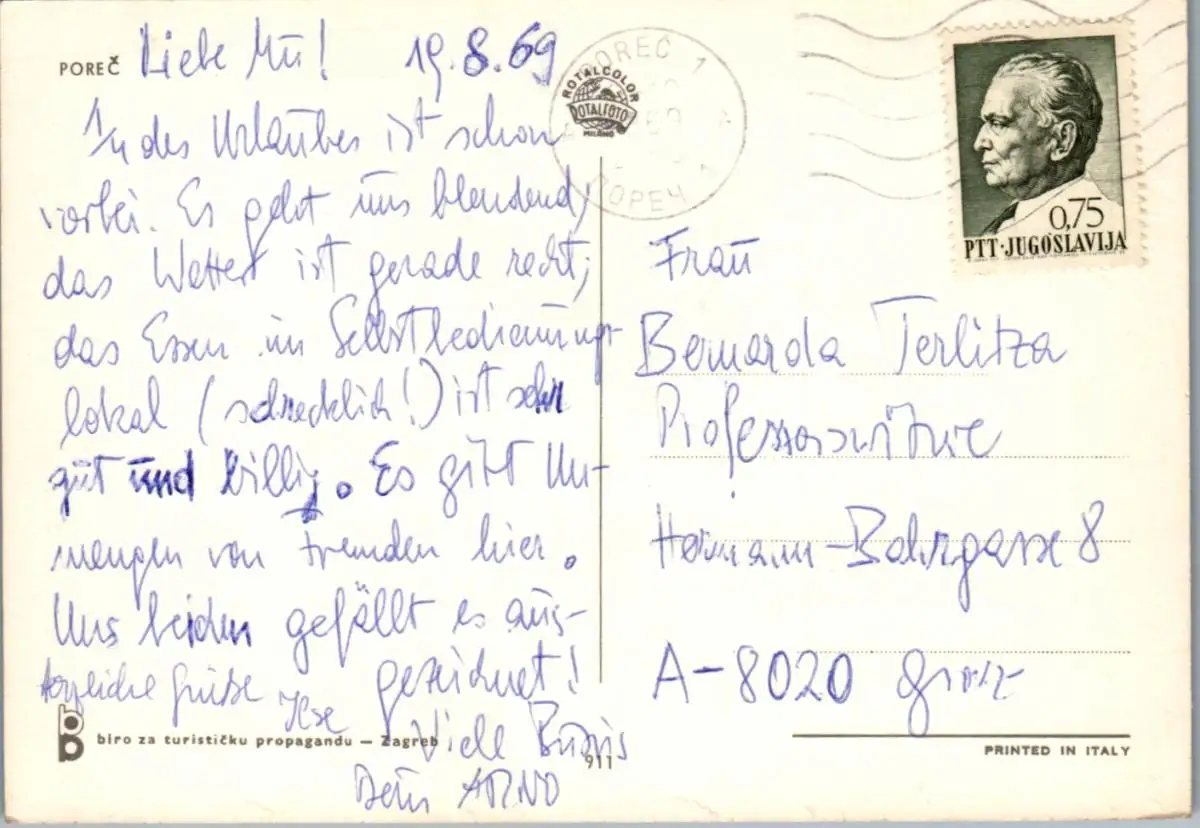 POREČ
Liebe Mü! 19.8.69
1/4 des Urlaubes ist schon
vorbei. Es geht uns blendend,
das Wetter ist gerade recht,
das Essen im Selbstbedienungs-
lokal (schrecklich!) ist sehr
gut und billig. Es gibt Un-
mengen von Fremden hier.
Uns beiden gefällt es aus-
gezeichnet!
Herzliche Grüße
Ilse
Viele Bussis
Dein ARNO
biro za turističku propagandu – Zagreb
911
ROTALCOLOR
ROTALFOTO
MILANO
POREČ 1
69
ПОРЕЧ 1
0,75
PTT·JUGOSLAVIJA
Frau
Bernarda Terlitza
Professorswitwe
Hermann-Bahrgasse 8
A-8020 Graz
PRINTED IN ITALY